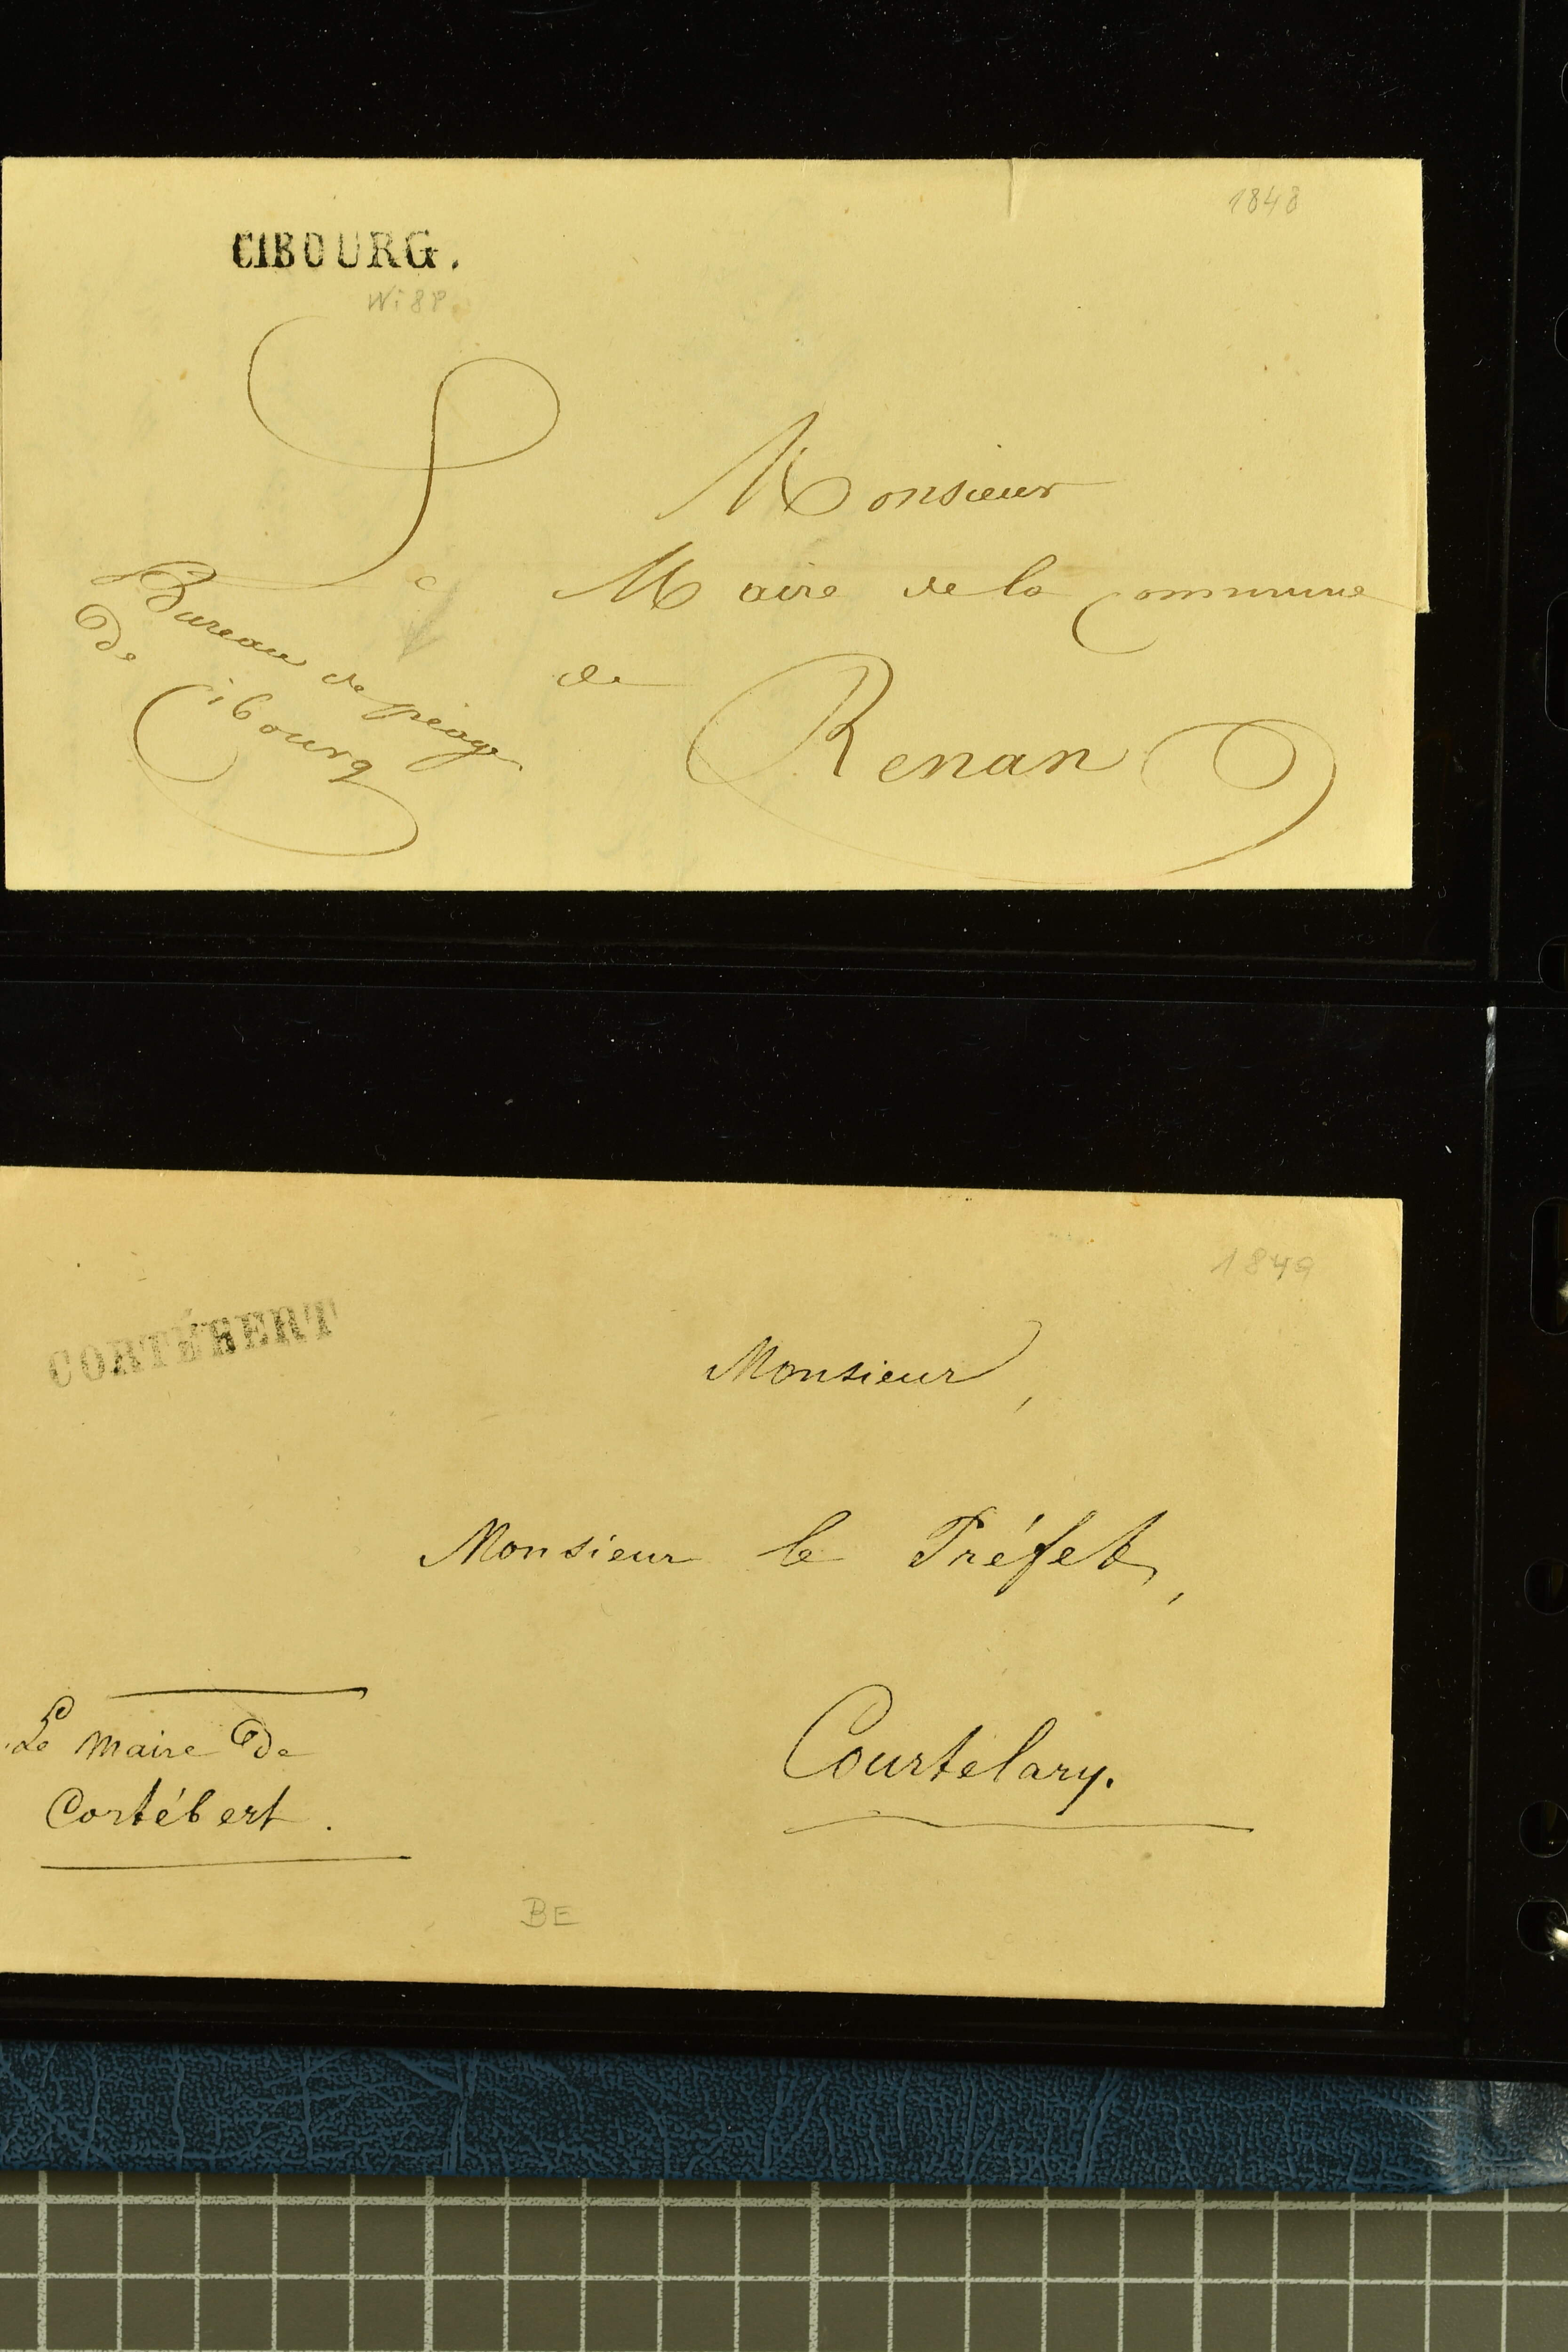 1848
CIBOURG.
Monsieur
Le Maire de la Commune
de Renan
Bureau de péage
De
Cibourg
1849
CORTÉBERT
Monsieur,
Monsieur le Préfet,
Courtelary.
Le Maire De
Cortébert.
BE